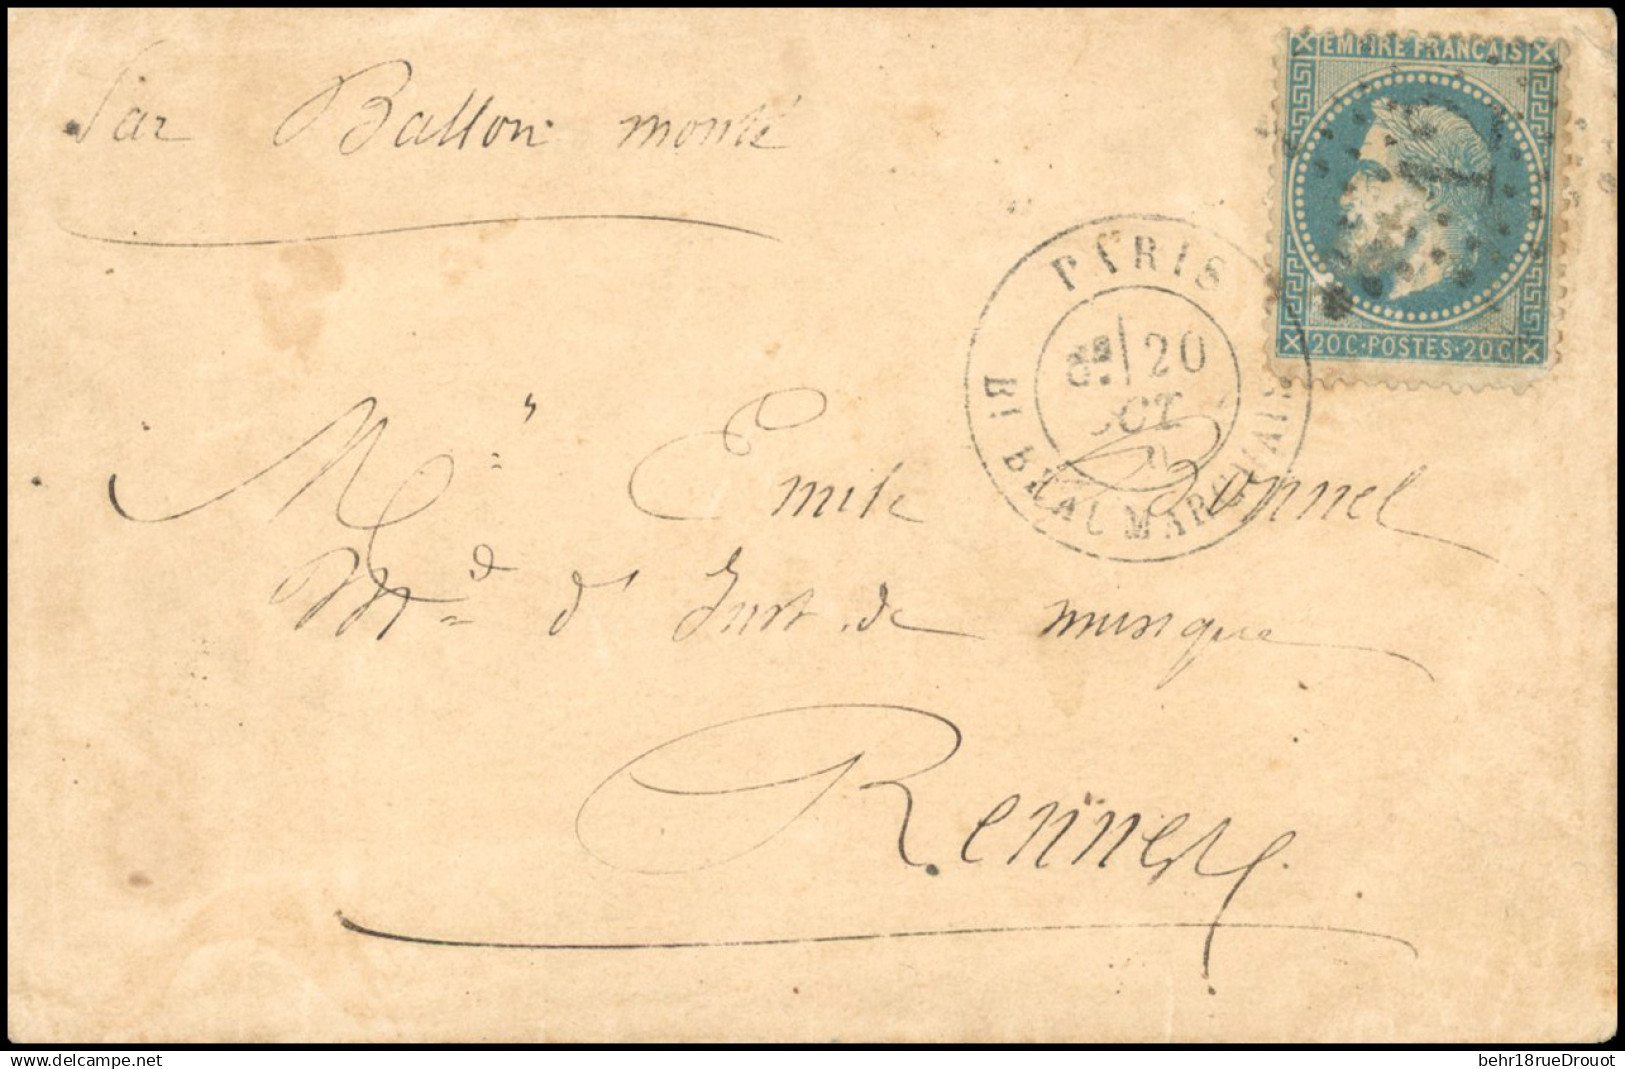 Par Ballon monté
EMPIRE FRANCAIS
20 C · POSTES · 20 C
PARIS
20
OCT
BEAUMARCHAIS
Mr Emile Bonnel
Md d'Inst. de musique
Rennes
delcampe.net
behr18rueDrouot